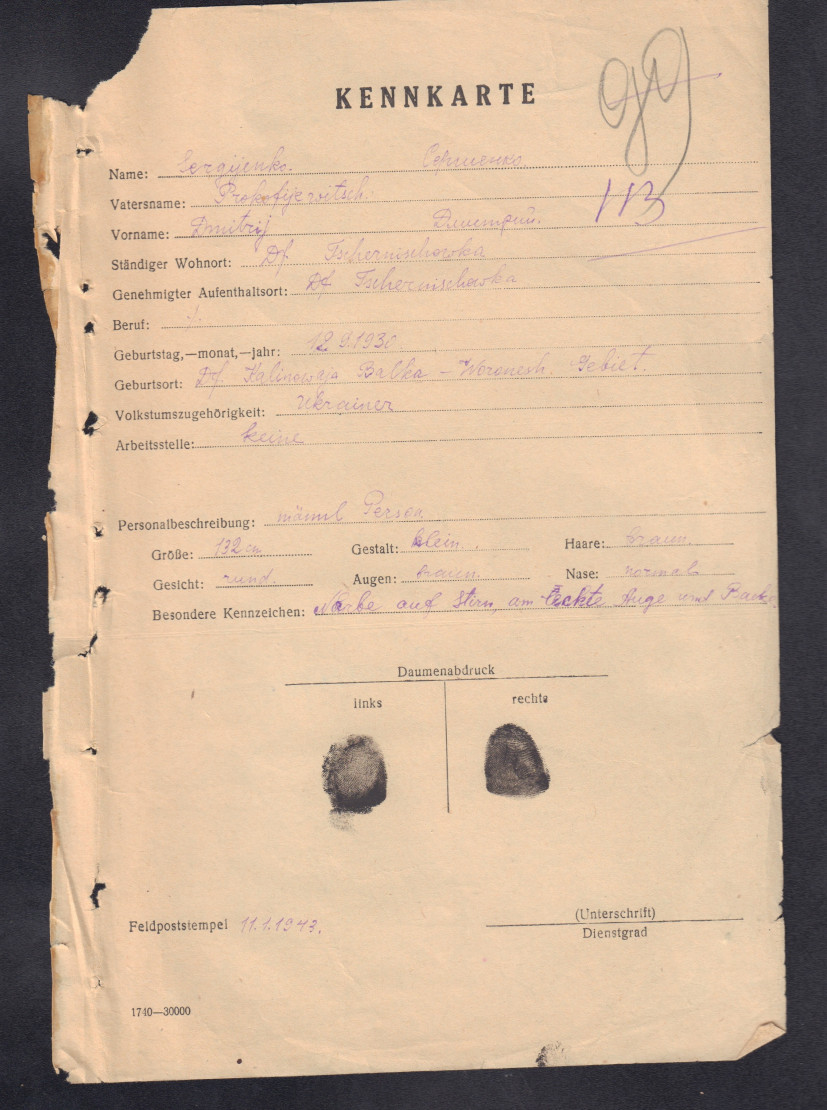 KENNKARTE
Name: Sergijenko. Сергиенко
Vatersname: Prokofijewitsch.
113
Vorname: Dmitrij Дмитрий.
Ständiger Wohnort: Df. Tschernischowka
Genehmigter Aufenthaltsort: Df Tschernischowka
Beruf:
Geburtstag,—monat,—jahr: 12.9.1930.
Geburtsort: Df. Kalinowaja Balka – Woronesh. Gebiet.
Volkstumszugehörigkeit: Ukrainer
Arbeitsstelle: keine
Personalbeschreibung: männl Person
Größe: 132 cm Gestalt: klein. Haare: braun.
Gesicht: rund. Augen: braun. Nase: normal
Besondere Kennzeichen: Narbe auf Stirn, am Auge und
Daumenabdruck
links rechts
Feldpoststempel 11.1.1943.
(Unterschrift)
Dienstgrad
1740—30000